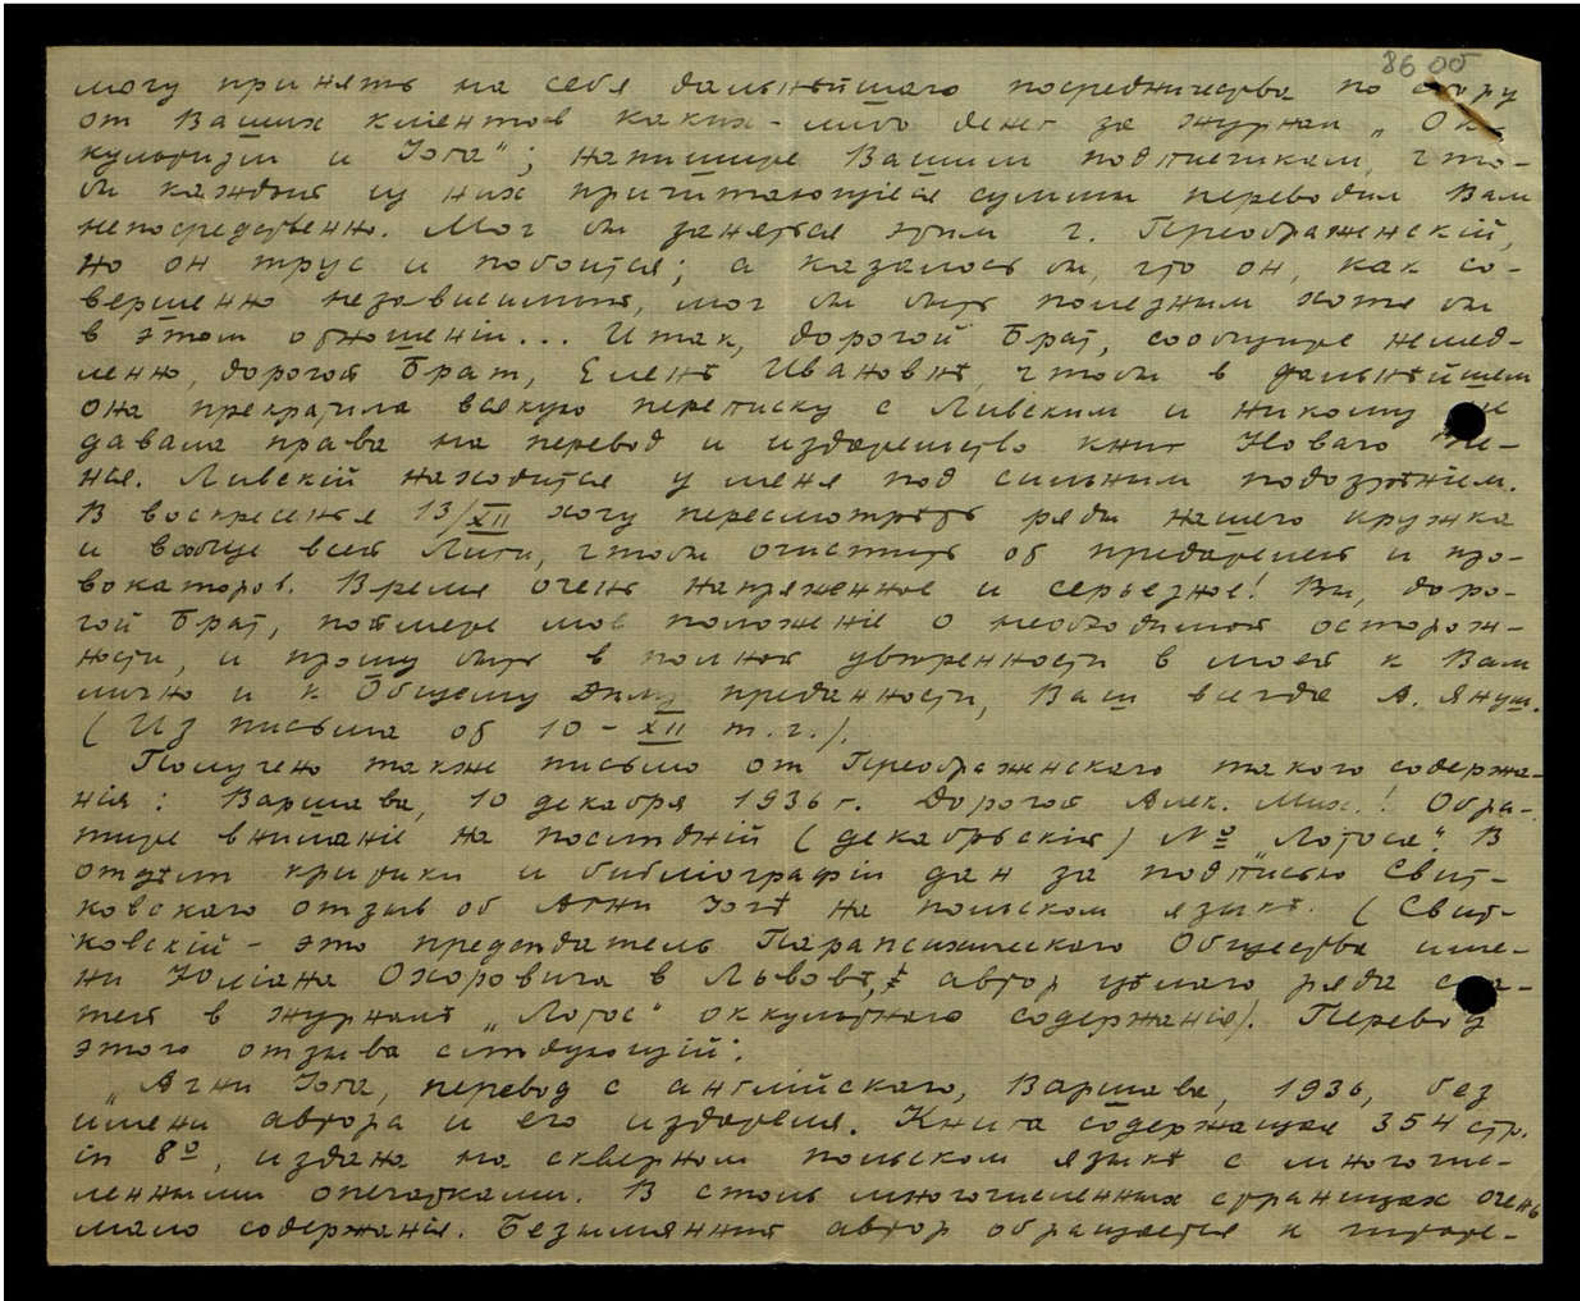 86 об
могу принять на себя дальнѣйшаго посредничества по сбору
от Ваших клiентов каких-либо денег за журнал „Ок-
культизм и Iога“; напишите Вашим подписчикам, что-
бы каждый из них причитающiеся суммы переводил Вам
непосредственно. Мог бы заняться этим г. Преображенскiй,
но он трус и побоится; а казалось бы, что он, как со-
вершенно независимый, мог бы быть полезным хотя бы
в этом отношенiи... Итак, дорогой Брат, сообщите немед-
ленно, дорогой Брат, Еленѣ Ивановнѣ, чтобы в дальнѣйшем
она прекратила всякую переписку с Ливским и никому не
давала права на перевод и издательство книг Новаго Уче-
нья. Ливскiй находится у меня под сильным подозрѣнiем.
В воскресенье 13/XII хочу пересмотрѣть ряды нашего кружка
и вообще всей Лиги, чтобы очистить от предателей и про-
вокаторов. Время очень напряженное и серьезное! Вы, доро-
гой Брат, поймете мое положенiе о необходимой осторож-
ности, и прошу быть в полной увѣренности в моей к Вам
лично и к Общему Дѣлу преданности, Ваш всегда А. Януш.
(Из письма от 10-XII т.г.).
Получено также письмо от Преображенскаго такого содержа-
нiя: Варшава, 10 декабря 1936 г. Дорогой Алек. Мих.! Обра-
тите вниманiе на послѣднiй (декабрьскiй) № „Лотоса“. В
отдѣлѣ критики и библiографiи дан за подписью Свит-
ковскаго отзыв об Агни Iогѣ на польском языкѣ. (Свит-
ковскiй - это предсѣдатель Парапсихическаго Общества име-
ни Юлiана Охоровича в Львовѣ, автор цѣлаго ряда ста-
тей в журналѣ „Лотос“ оккультнаго содержанiя). Перевод
этого отзыва слѣдующiй:
„Агни Iога, перевод с англiйскаго, Варшава, 1936, без
имени автора и его издателя. Книга содержащая 354 стр.
in 8º, издана на скверном польском языкѣ с многочис-
ленными опечатками. В столь многочисленных страницах очень
мало содержанiя. Безымянный автор обращается к читате-